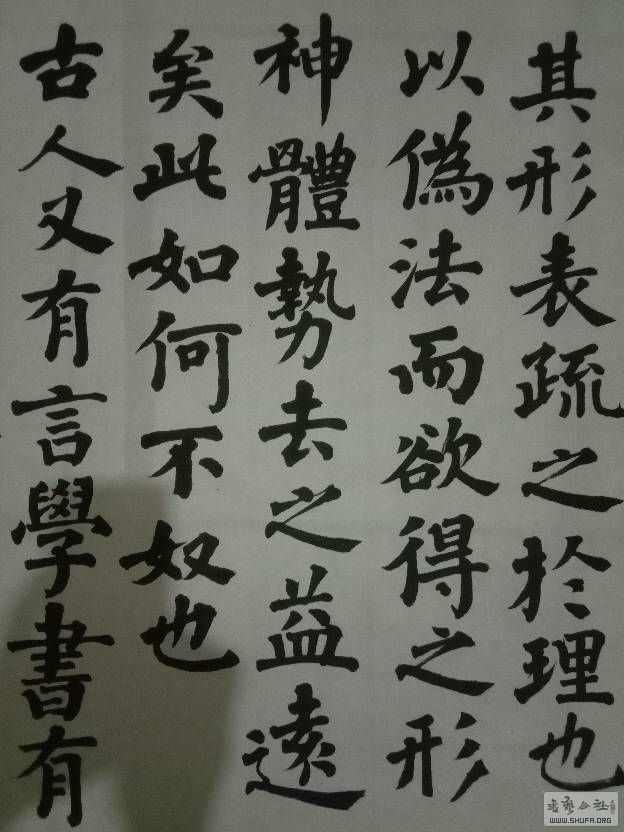 其形表疏之於理也
以偽法而欲得之形
神體勢去之益遠
矣此如何不奴也
古人又有言學書有
WWW.SHUFA.ORG